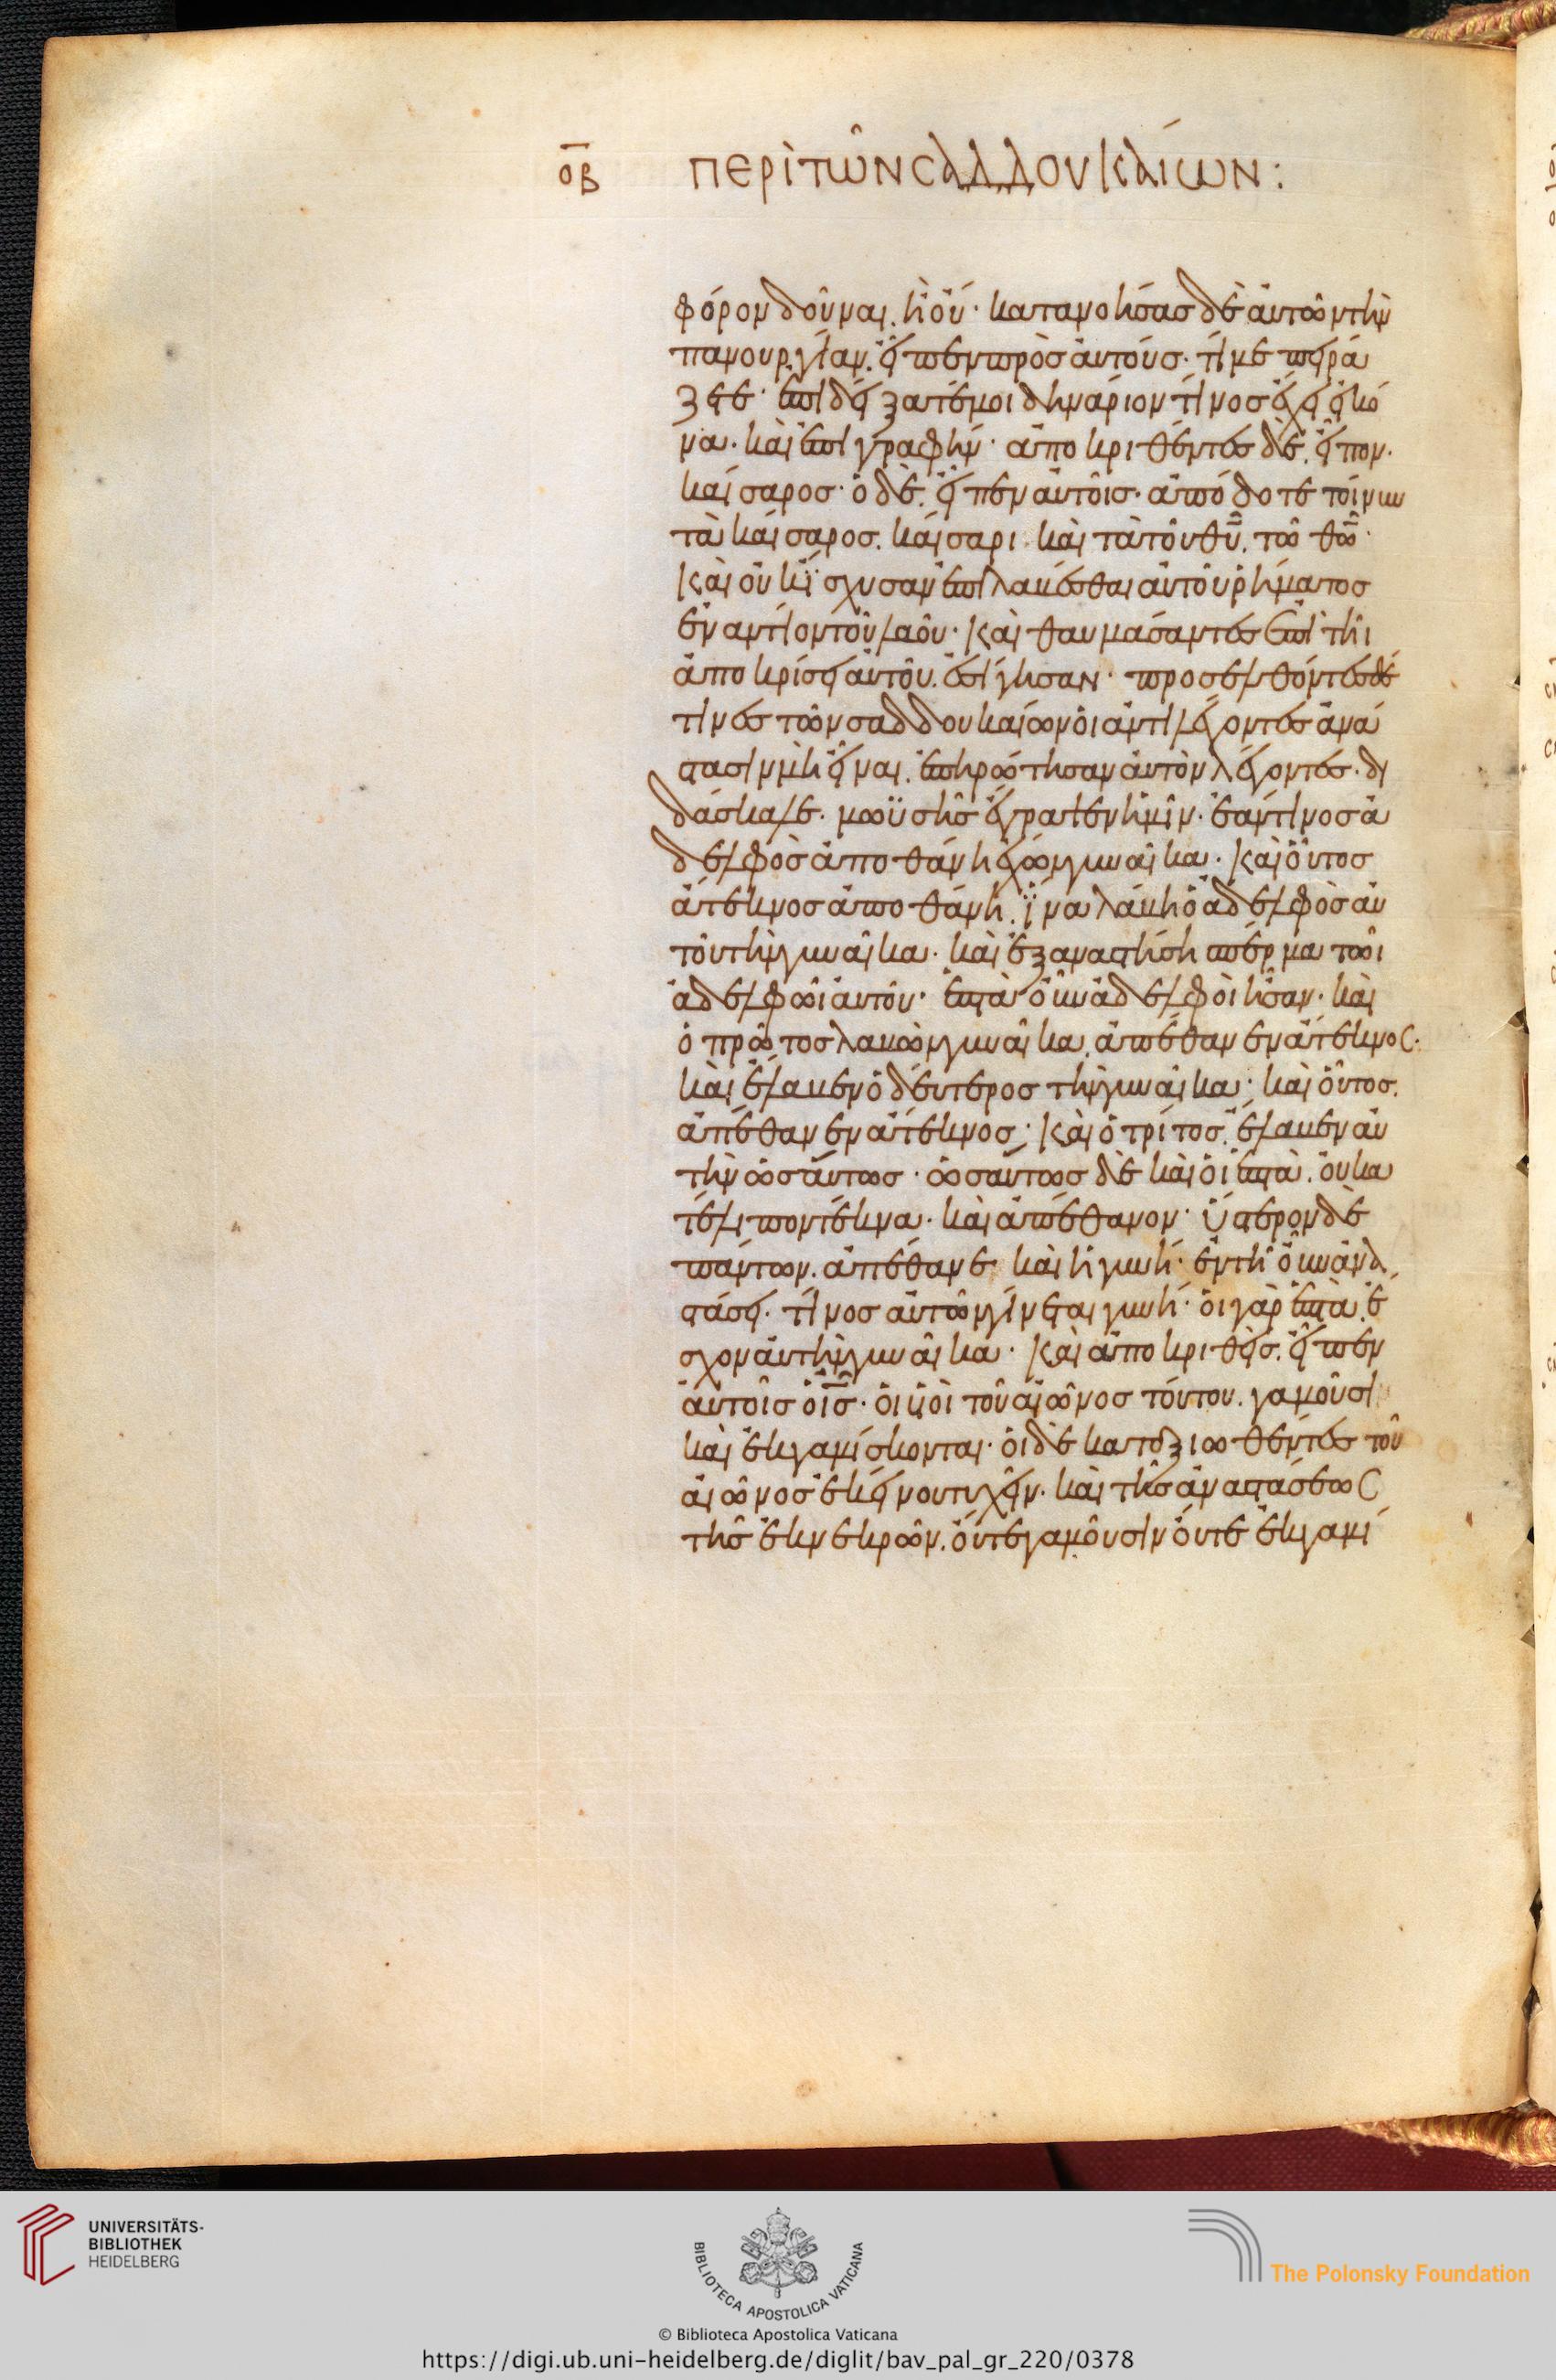 οβ περὶ τῶν σαδδουκαίων:
φόρον δοῦναι. ἢ οὔ· κατανοήσας δὲ αὐτῶν τὴν
πανουργίαν. εἶπεν πρὸς αὐτούς· τί με πειρά
ζετε· ἐπιδείξατέ μοι δηνάριον τίνος ἔχει εἰκό
να· καὶ ἐπιγραφήν· ἀποκριθέντες δὲ. εἶπον·
καίσαρος· ὁ δὲ. εἶπεν αὐτοῖς· ἀπόδοτε τοίνυν
τὰ καίσαρος. καίσαρι καὶ τὰ τοῦ θυ. τῶ θω·
Καὶ οὐκ ἴσχυσαν ἐπιλαβέσθαι αὐτοῦ ῥήματος
ἐναντίον τοῦ λαοῦ· Καὶ θαυμάσαντες ἐπὶ τῆι
ἀποκρίσει αὐτοῦ. ἐσίγησαν· προσελθόντες δέ
τινες τῶν σαδδουκαίων οἱ ἀντιλέγοντες ἀνά
στασιν μὴ εἶναι. ἐπηρώτησαν αὐτὸν λέγοντες· δι
δάσκαλε. μωϋσῆς ἔγραψεν ἡμῖν· ἐάν τινος ἀ
δελφὸς ἀποθάνη ἔχων γυναῖκα· Καὶ οὗτος
ἄτεκνος ἀποθάνη. ἵνα λάβη ὁ ἀδελφὸς αὐ
τοῦ τὴν γυναῖκα· καὶ ἐξαναστήση σπέρμα τῶι
ἀδελφῶι αὐτοῦ· ἑπτὰ οὖν ἀδελφοὶ ἦσαν· καὶ
ὁ πρῶτος λαβὼν γυναῖκα. ἀπέθανεν ἄτεκνος·
καὶ ἔλαβεν ὁ δεύτερος τὴν γυναῖκα· καὶ οὗτος.
ἀπέθανεν ἄτεκνος· Καὶ ὁ τρίτος. ἔλαβεν αὐ
τὴν ὡσαύτως· ὡσαύτως δὲ καὶ οἱ ἑπτὰ. οὐ κα
τέλιπον τέκνα· καὶ ἀπέθανον· ὕστερον δὲ
πάντων. ἀπέθανε καὶ ἡ γυνή· ἐν τῆ οὖν ἀνα
στάσει. τίνος αὐτῶν γίνεται γυνή· οἱ γὰρ ἑπτὰ. ἔ
σχον αὐτὴν γυναῖκα· Καὶ ἀποκριθεὶς. εἶπεν
αὐτοῖς ὁ ις· οἱ υἱοὶ τοῦ αἰῶνος τούτου. γαμοῦσι
καὶ ἐκγαμίσκονται· οἱ δὲ καταξιωθέντες τοῦ
αἰῶνος ἐκείνου τυχεῖν· καὶ τῆς ἀναστάσεως
τῆς ἐκ νεκρῶν. οὔτε γαμοῦσιν οὔτε ἐκγαμί
UNIVERSITÄTS-
BIBLIOTHEK
HEIDELBERG
BIBLIOTECA APOSTOLICA VATICANA
The Polonsky Foundation
© Biblioteca Apostolica Vaticana
https://digi.ub.uni-heidelberg.de/diglit/bav_pal_gr_220/0378